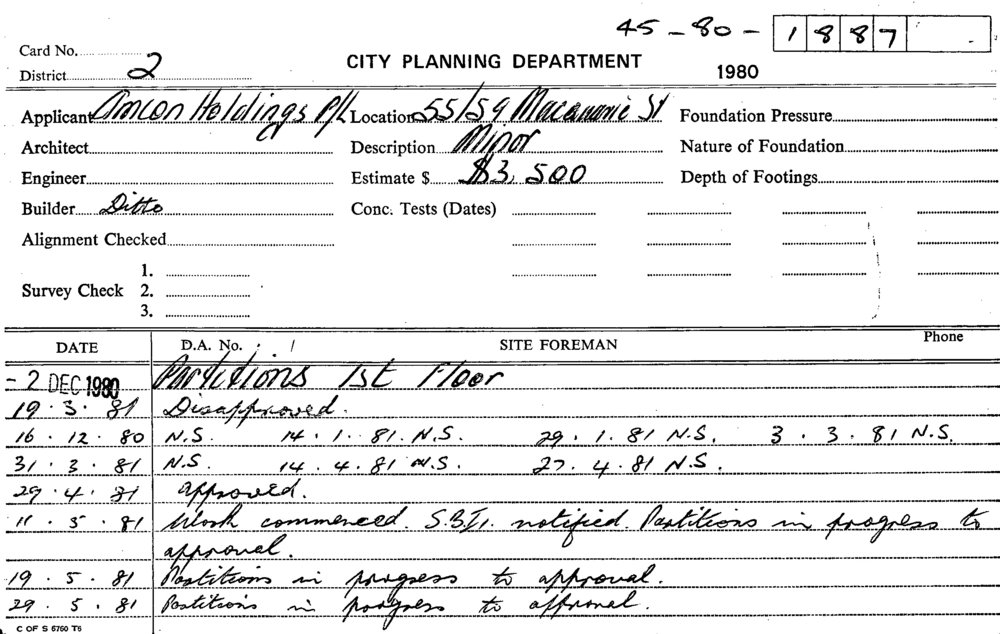 45-80- 1887
Card No.
District 2
CITY PLANNING DEPARTMENT
1980
Applicant Amcon Holdings P/L Location 55/59 St Foundation Pressure
Architect Description Minor Nature of Foundation
Engineer Estimate $ $3,500 Depth of Footings
Builder Ditto Conc. Tests (Dates)
Alignment Checked
1.
Survey Check 2.
3.
DATE D.A. No. SITE FOREMAN Phone
-2 DEC 1980 Partitions 1st Floor
19.3.81 Disapproved.
16.12.80 N.S. 14.1.81. N.S. 29.1.81 N.S. 3.3.81 N.S.
31.3.81 N.S. 14.4.81 N.S. 27.4.81 N.S.
29.4.81 approved.
11.5.81 Work commenced. S.B.I. notified. Partitions in progress to
approval.
19.5.81 Partitions in progress to approval.
29.5.81 Partitions in progress to approval.
C OF S 6760 T6